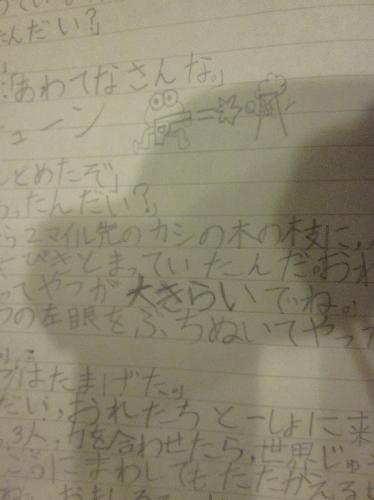 んだい?」
「あわてなさんな。」
ューン
しとめたぞ」
ったんだい?」
ら2マイル先のカシの木の枝に、
びきとまっていたんだ。おれ
ってやつが大きらいでね。
の左眼をぶちぬいてやった
はたまげた。」
だい、おれたちと一しょに来
3人、力を合わせたら、世界じゅ
にまわしてもたたかえる